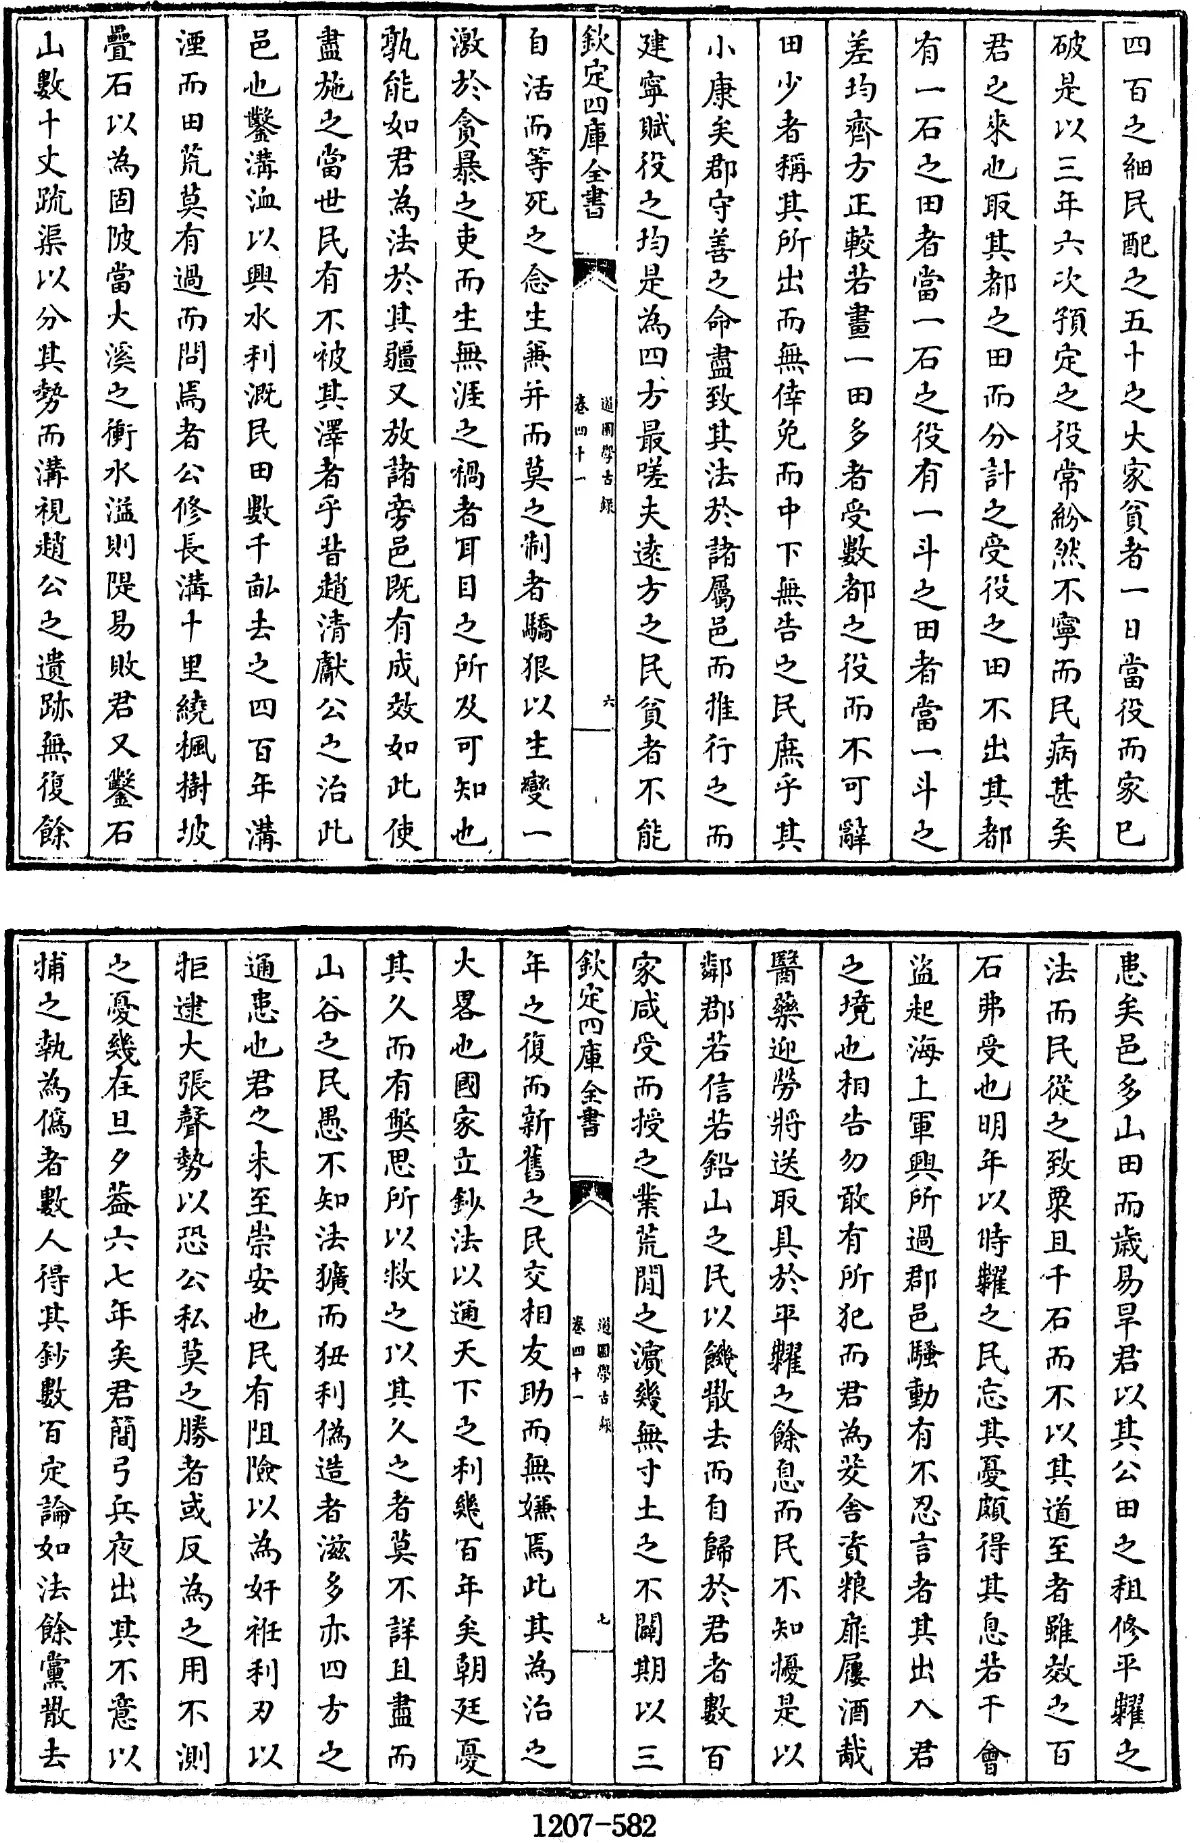 四百之細民配之五十之大家貧者一日當役而家已
破是以三年六次預定之役常紛然不寧而民病甚矣
君之來也取其都之田而分計之受役之田不出其都
有一石之田者當一石之役有一斗之田者當一斗之
差均齊方正較若畫一田多者受數都之役而不可辭
田少者稱其所出而無倖免而中下無告之民庶乎其
小康矣郡守善之命盡致其法於諸屬邑而推行之而
建寧賦役之均是為四方最嗟夫遠方之民貧者不能
欽定四庫全書
道園學古錄
卷四十一
六
自活而等死之念生兼并而莫之制者驕狠以生變一
激於貪暴之吏而生無涯之禍者耳目之所及可知也
孰能如君為法於其疆又放諸旁邑既有成效如此使
盡施之當世民有不被其澤者乎昔趙清獻公之治此
邑也鑿溝洫以興水利溉民田數千畝去之四百年溝
湮而田荒莫有過而問焉者公修長溝十里繞楓樹坡
疊石以為固陂當大溪之衝水溢則隄易敗君又鑿石
山數十丈疏渠以分其勢而溝視趙公之遺跡無復餘
患矣邑多山田而歲易旱君以其公田之租修平糶之
法而民從之致粟且千石而不以其道至者雖效之百
石弗受也明年以時糶之民忘其憂頗得其息若干會
盜起海上軍興所過郡邑騷動有不忍言者其出入君
之境也相告勿敢有所犯而君為茇舍資糧扉屨酒胾
醫藥迎勞將送取具於平糶之餘息而民不知擾是以
鄰郡若信若鉛山之民以饑散去而自歸於君者數百
家咸受而授之業荒閒之濵幾無寸土之不闢期以三
欽定四庫全書
道園學古錄
卷四十一
七
年之復而新舊之民交相友助而無嫌焉此其為治之
大畧也國家立鈔法以通天下之利幾百年矣朝廷憂
其久而有弊思所以救之以其久之者莫不詳且盡而
山谷之民愚不知法獷而狃利偽造者滋多亦四方之
通患也君之未至崇安也民有阻險以為奸祍利刃以
拒逮大張聲勢以恐公私莫之勝者或反為之用不測
之憂幾在旦夕葢六七年矣君簡弓兵夜出其不意以
捕之執為偽者數人得其鈔數百定論如法餘黨散去
1207-582